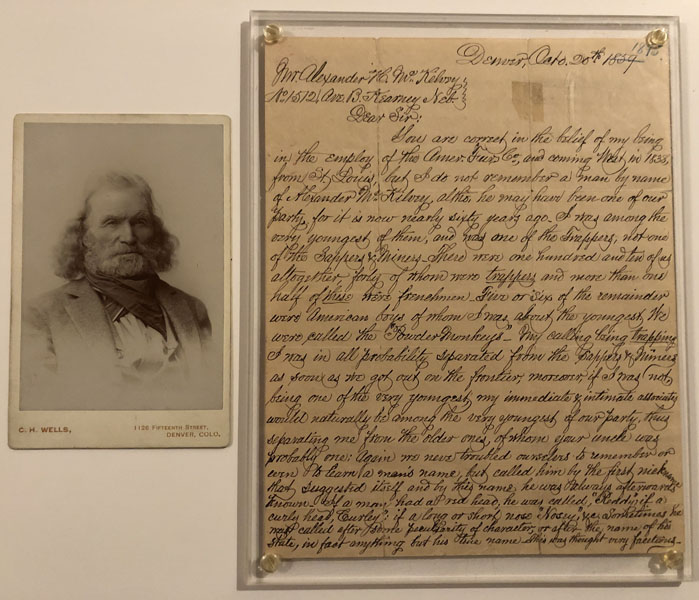 C. H. WELLS,
1126 FIFTEENTH STREET,
DENVER, COLO.
Denver, Colo. 20th 1889
Mr. Alexander H. McKelvy,
No 1512 Ave B. Kearney Neb.
Dear Sir:
You are correct in the belief of my being
in the employ of the Amer. Fur Co, and coming West in 1838,
from St. Louis, but I do not remember a man by name
of Alexander McKilvy, altho, he may have been one of our
party, for it is now nearly sixty years ago. I was among the
very youngest of them, and was one of the Trappers, not one
of the Sappers & Miners. There were one hundred and ten of us
altogether, forty of whom were trappers and more than one
half of these were frenchmen. Five or six of the remainder
were American boys of whom I was about the youngest. We
were called the "Powder Monkeys" – My calling being trapping
I was in all probability separated from the Sappers & Miners
as soon as we got out on the frontier, moreover, if I was not,
being one of the very youngest my immediate & intimate associates
would naturally be among the very youngest of our party, thus
separating me from the older ones, of whom your uncle was
probably one: Again we never troubled ourselves to remember or
even to learn a man's name, but called him by the first nickname
that suggested itself and by this name, he was always afterwards
known. If a man had a red head, he was called, "Reddy", if a
curly head, "Curley", if a long or short nose "Nosey", &c. Sometimes he
was called after, some peculiarity of character, or after the name of his
State, in fact anything but his true name – this was thought very facetious –